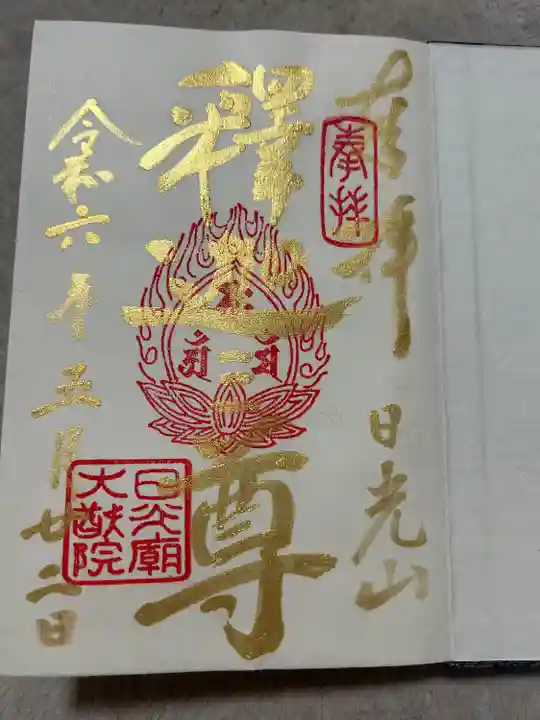 奉拝 日光山
奉拝
釋迦三尊
令和六年五月廿二日
日光廟
大猷院